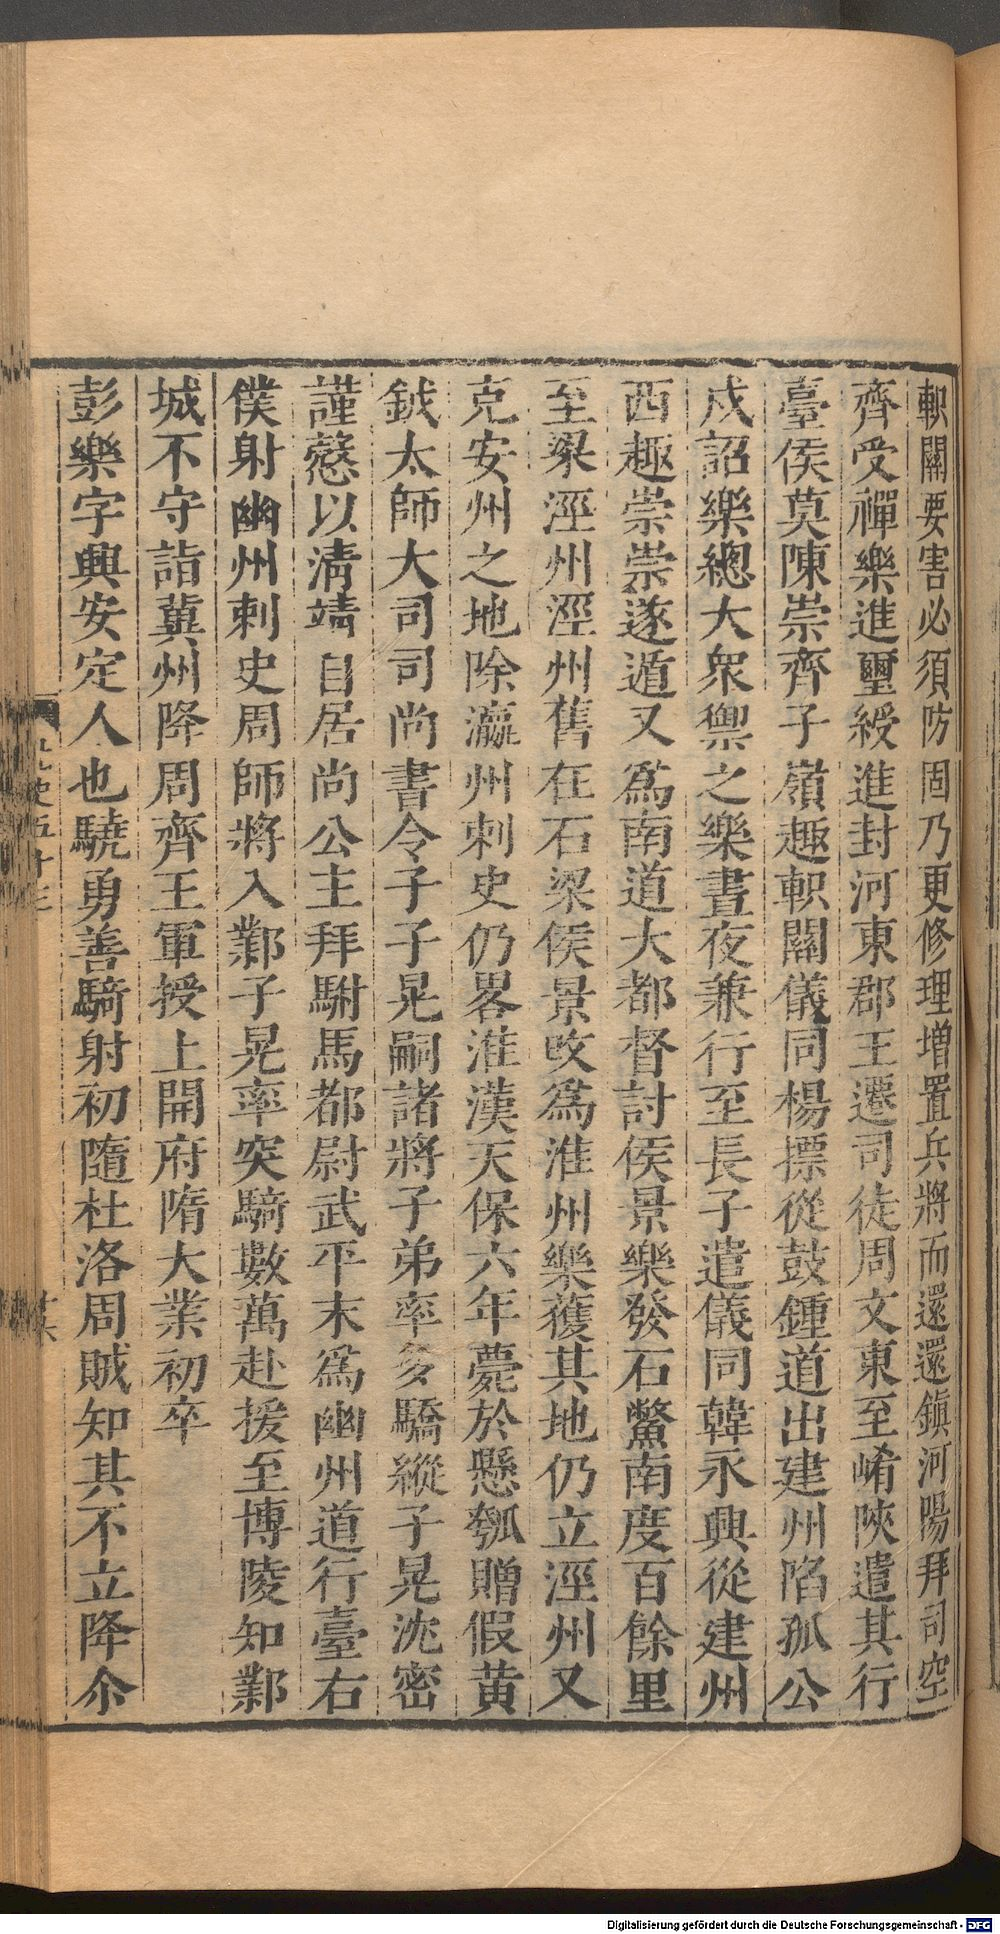 軹關要害必須防固乃更修理增置兵將而還還鎮河陽拜司空
齊受禪樂進璽綬進封河東郡王遷司徒周文東至崤陝遣其行
臺侯莫陳崇齊子嶺趣軹關儀同楊摽從鼓鍾道出建州陷孤公
戍詔樂總大衆禦之樂晝夜兼行至長子遣儀同韓永興從建州
西趣崇崇遂遁又爲南道大都督討侯景樂發石鱉南度百餘里
至梁涇州涇州舊在石梁侯景攺爲淮州樂獲其地仍立涇州又
克安州之地除瀛州刺史仍畧淮漢天保六年薨於懸瓠贈假黄
鉞太師大司司尚書令子子晃嗣諸將子弟率多驕縱子晃沈密
謹慤以淸靖自居尚公主拜駙馬都尉武平末爲幽州道行臺右
僕射幽州刺史周師將入鄴子晃率突騎數萬赴援至博陵知鄴
城不守詣冀州降周齊王軍授上開府隋大業初卒
彭樂字興安定人也驍勇善騎射初隨杜洛周賊知其不立降尒
Digitalisierung gefördert durch die Deutsche Forschungsgemeinschaft - DFG